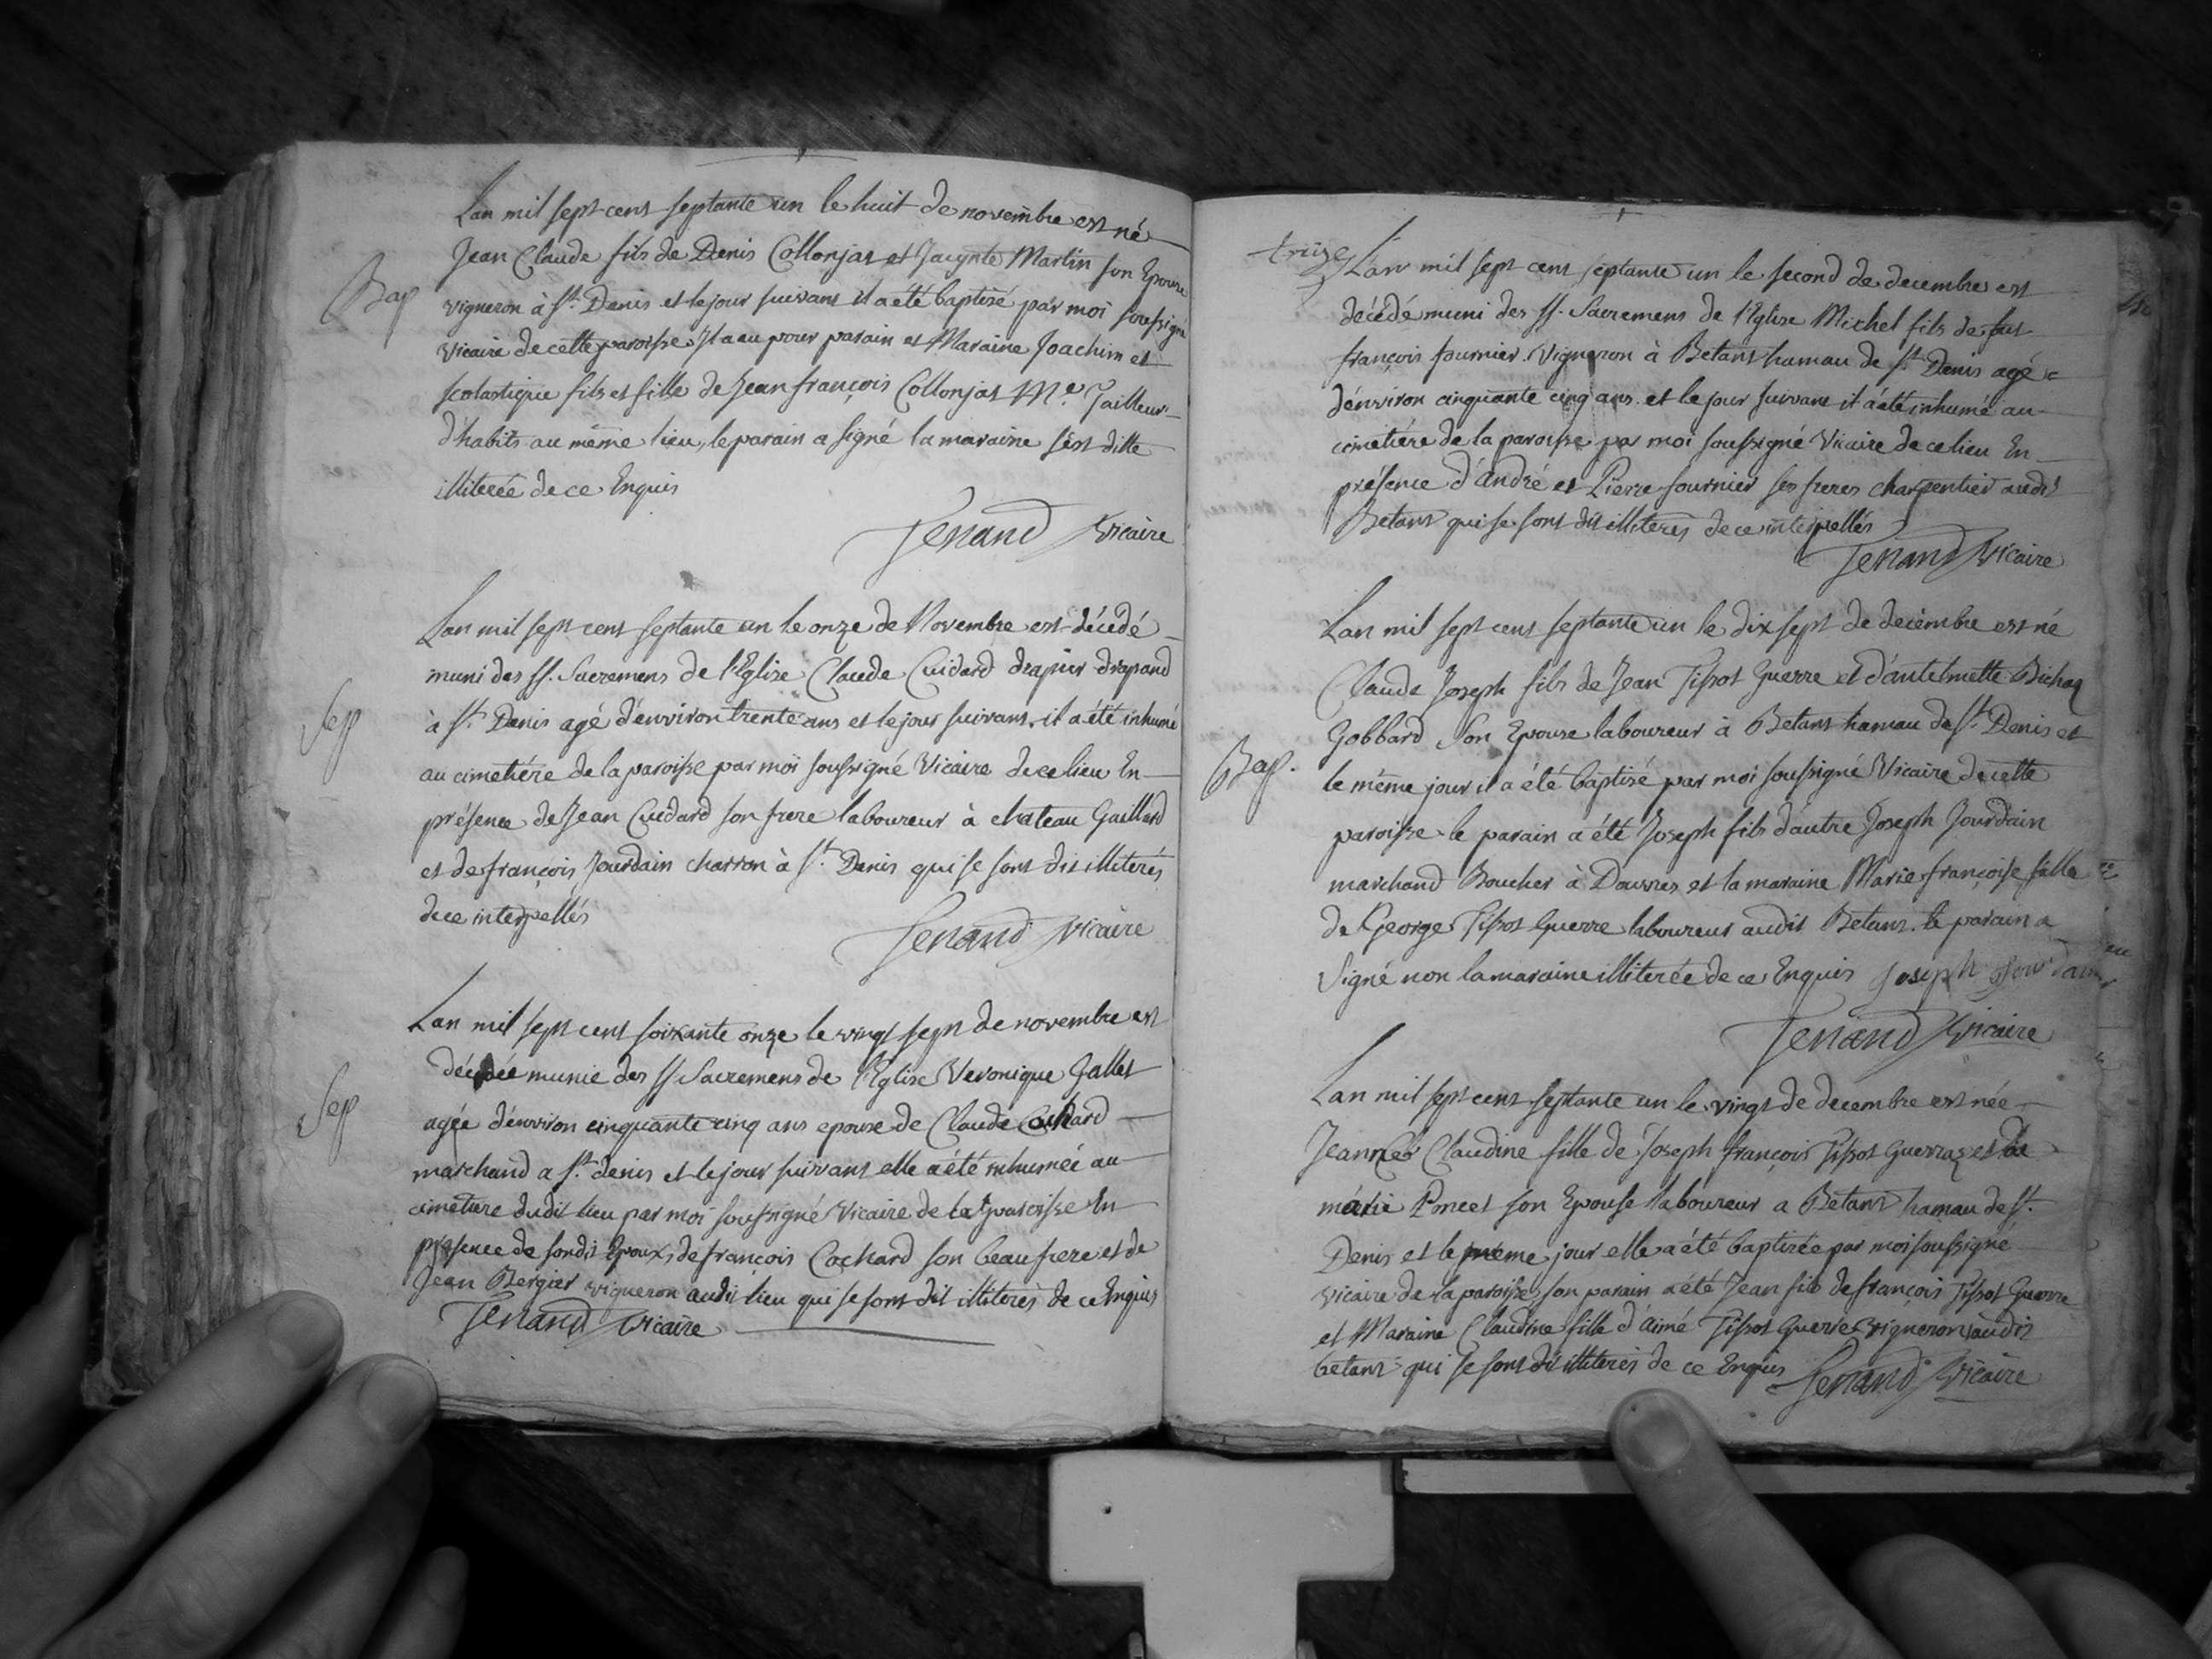 Lan mil sept cens septante un le huit de novembre est né
Jean Claude fils de Denis Collonjat et Jacynte Martin son Epouse
Bap
vigneron à St. Denis et le jour suivans il a été baptisé par moi soussigné
vicaire de cette paroisse. Il a eu pour parain et Maraine Joachim et
scolastique fils et fille de Jean françois Collonjat Me. Tailleur
d'habits au même lieu, le parain a signé la maraine s'est ditte
illiterée de ce Enquis
Tenand Vicaire
Lan mil sept cens septante un le onze de Novembre est décédé
muni des SS. Sacremens de l'Eglise Claude Cuidard drapier drapand
Sep
à St. Denis agé d'environ trente ans et le jour suivans il a été inhumé
au cimetiére de la paroisse par moi soussigné Vicaire de ce lieu En
présence de Jean Cuidard son frere laboureur à chateau Gaillard
et de françois Jourdain charron à St. Denis qui se sont dis illiterés
de ce interpellés
Tenand Vicaire
Lan mil sept cens soixante onze le vingt sept de novembre est
décédée munie des SS Sacremens de l'Eglise Veronique Gallet
Sep
agée d'environ cinquante cinq ans epouse de Claude Cochard
marchand a St. denis et le jour suivans elle a été inhumée au
cimetiere dudit lieu par moi soussigné Vicaire de la paroisse En
presence de sondit Epoux, de françois Cochard son beau frere et de
Jean Bergier vigneron audit lieu qui se sont dit illiterés de ce Enquis
Tenand Vicaire
treize
Lan mil sept cens septante un le second de decembre est
décédé muni des SS. Sacremens de l'Eglise Michel fils de feu
françois fournier Vigneron à Betans hamau de St. Denis agé
d'environ cinquante cinq ans et le jour suivans il a été inhumé au
cimetiére de la paroisse par moi soussigné Vicaire de ce lieu En
présence d'andré et Pierre fournier ses freres charpentier audit
Betans qui se sont dit illiterés de ce interpellés
Tenand Vicaire
Lan mil sept cens septante un le dix sept de decembre est né
Claude Joseph fils de Jean Tissot Guerre et d'antelmette
Gobbard son Epouse laboureur à Betans hamau de St. Denis et
Bap.
le même jour il a été baptisé par moi soussigné Vicaire de cette
paroisse le parain a été Joseph fils d'autre Joseph Jourdain
marchand Boucher à Douvres et la maraine Marie françoise fille
de George Tissot Guerre laboureur audit Betans. le parain a
signé non la maraine illiterée de ce Enquis Joseph Jourdain
Tenand Vicaire
Lan mil sept cens septante un le vingt de decembre est née
Claudine fille de Joseph françois Tissot Guerraz et de
marie Poncet son Epouse laboureur a Betans hamau de St.
Denis et le meme jour elle a été baptisée par moi soussigné
vicaire de la paroisse son parain a été Jean fils de françois Tissot Guerre
et Maraine Claudine fille d'aimé Tissot Guerre vigneron audit
betans qui se sont dit illiterés de ce Enquis Tenand Vicaire